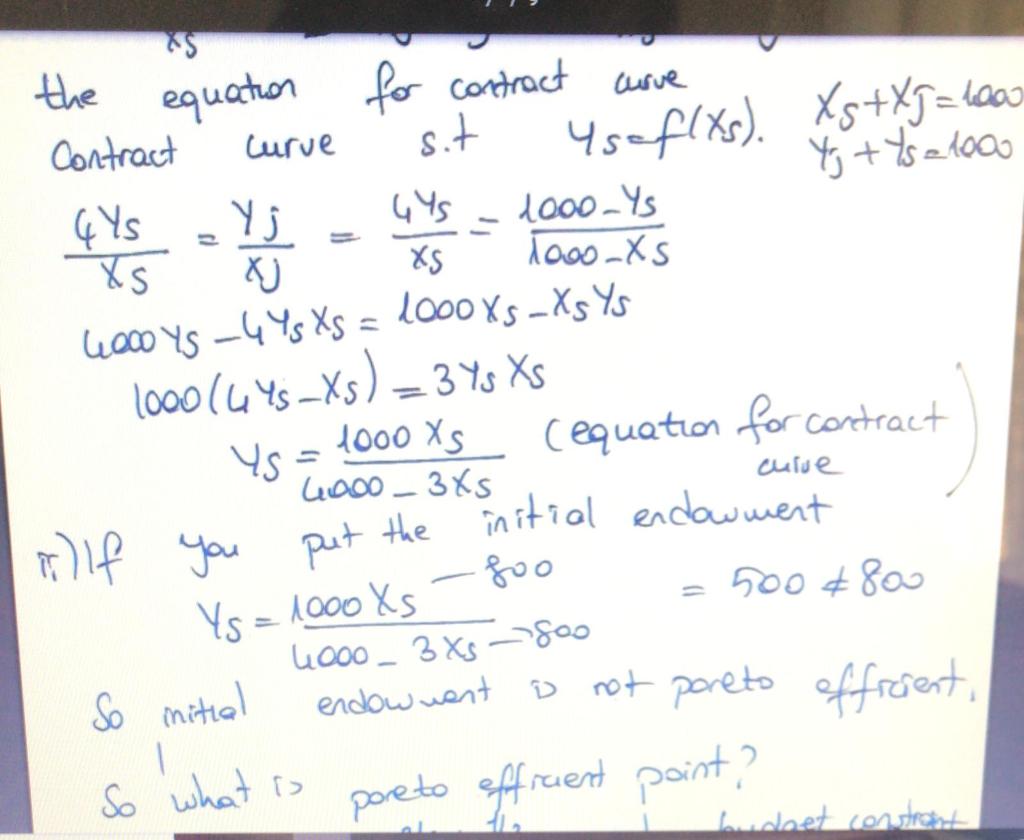 xs
the equation for contract curve Xs+Xj=1000
Contract curve s.t Ys=f(Xs). Yj+Ys=1000
4Ys/Xs = Yj/Xj = 4Ys/Xs = 1000-Ys/1000-Xs
4000Ys-4YsXs = 1000Xs-XsYs
1000(4Ys-Xs)=3YsXs
Ys = 1000Xs/4000-3Xs (equation for contract
curve)
ii) If you put the initial endowment
Ys = 1000Xs/4000-3Xs -800 →800 = 500 ≠ 800
So initial endowment is not pareto efficient.
So what is pareto efficient point?
budget constraint